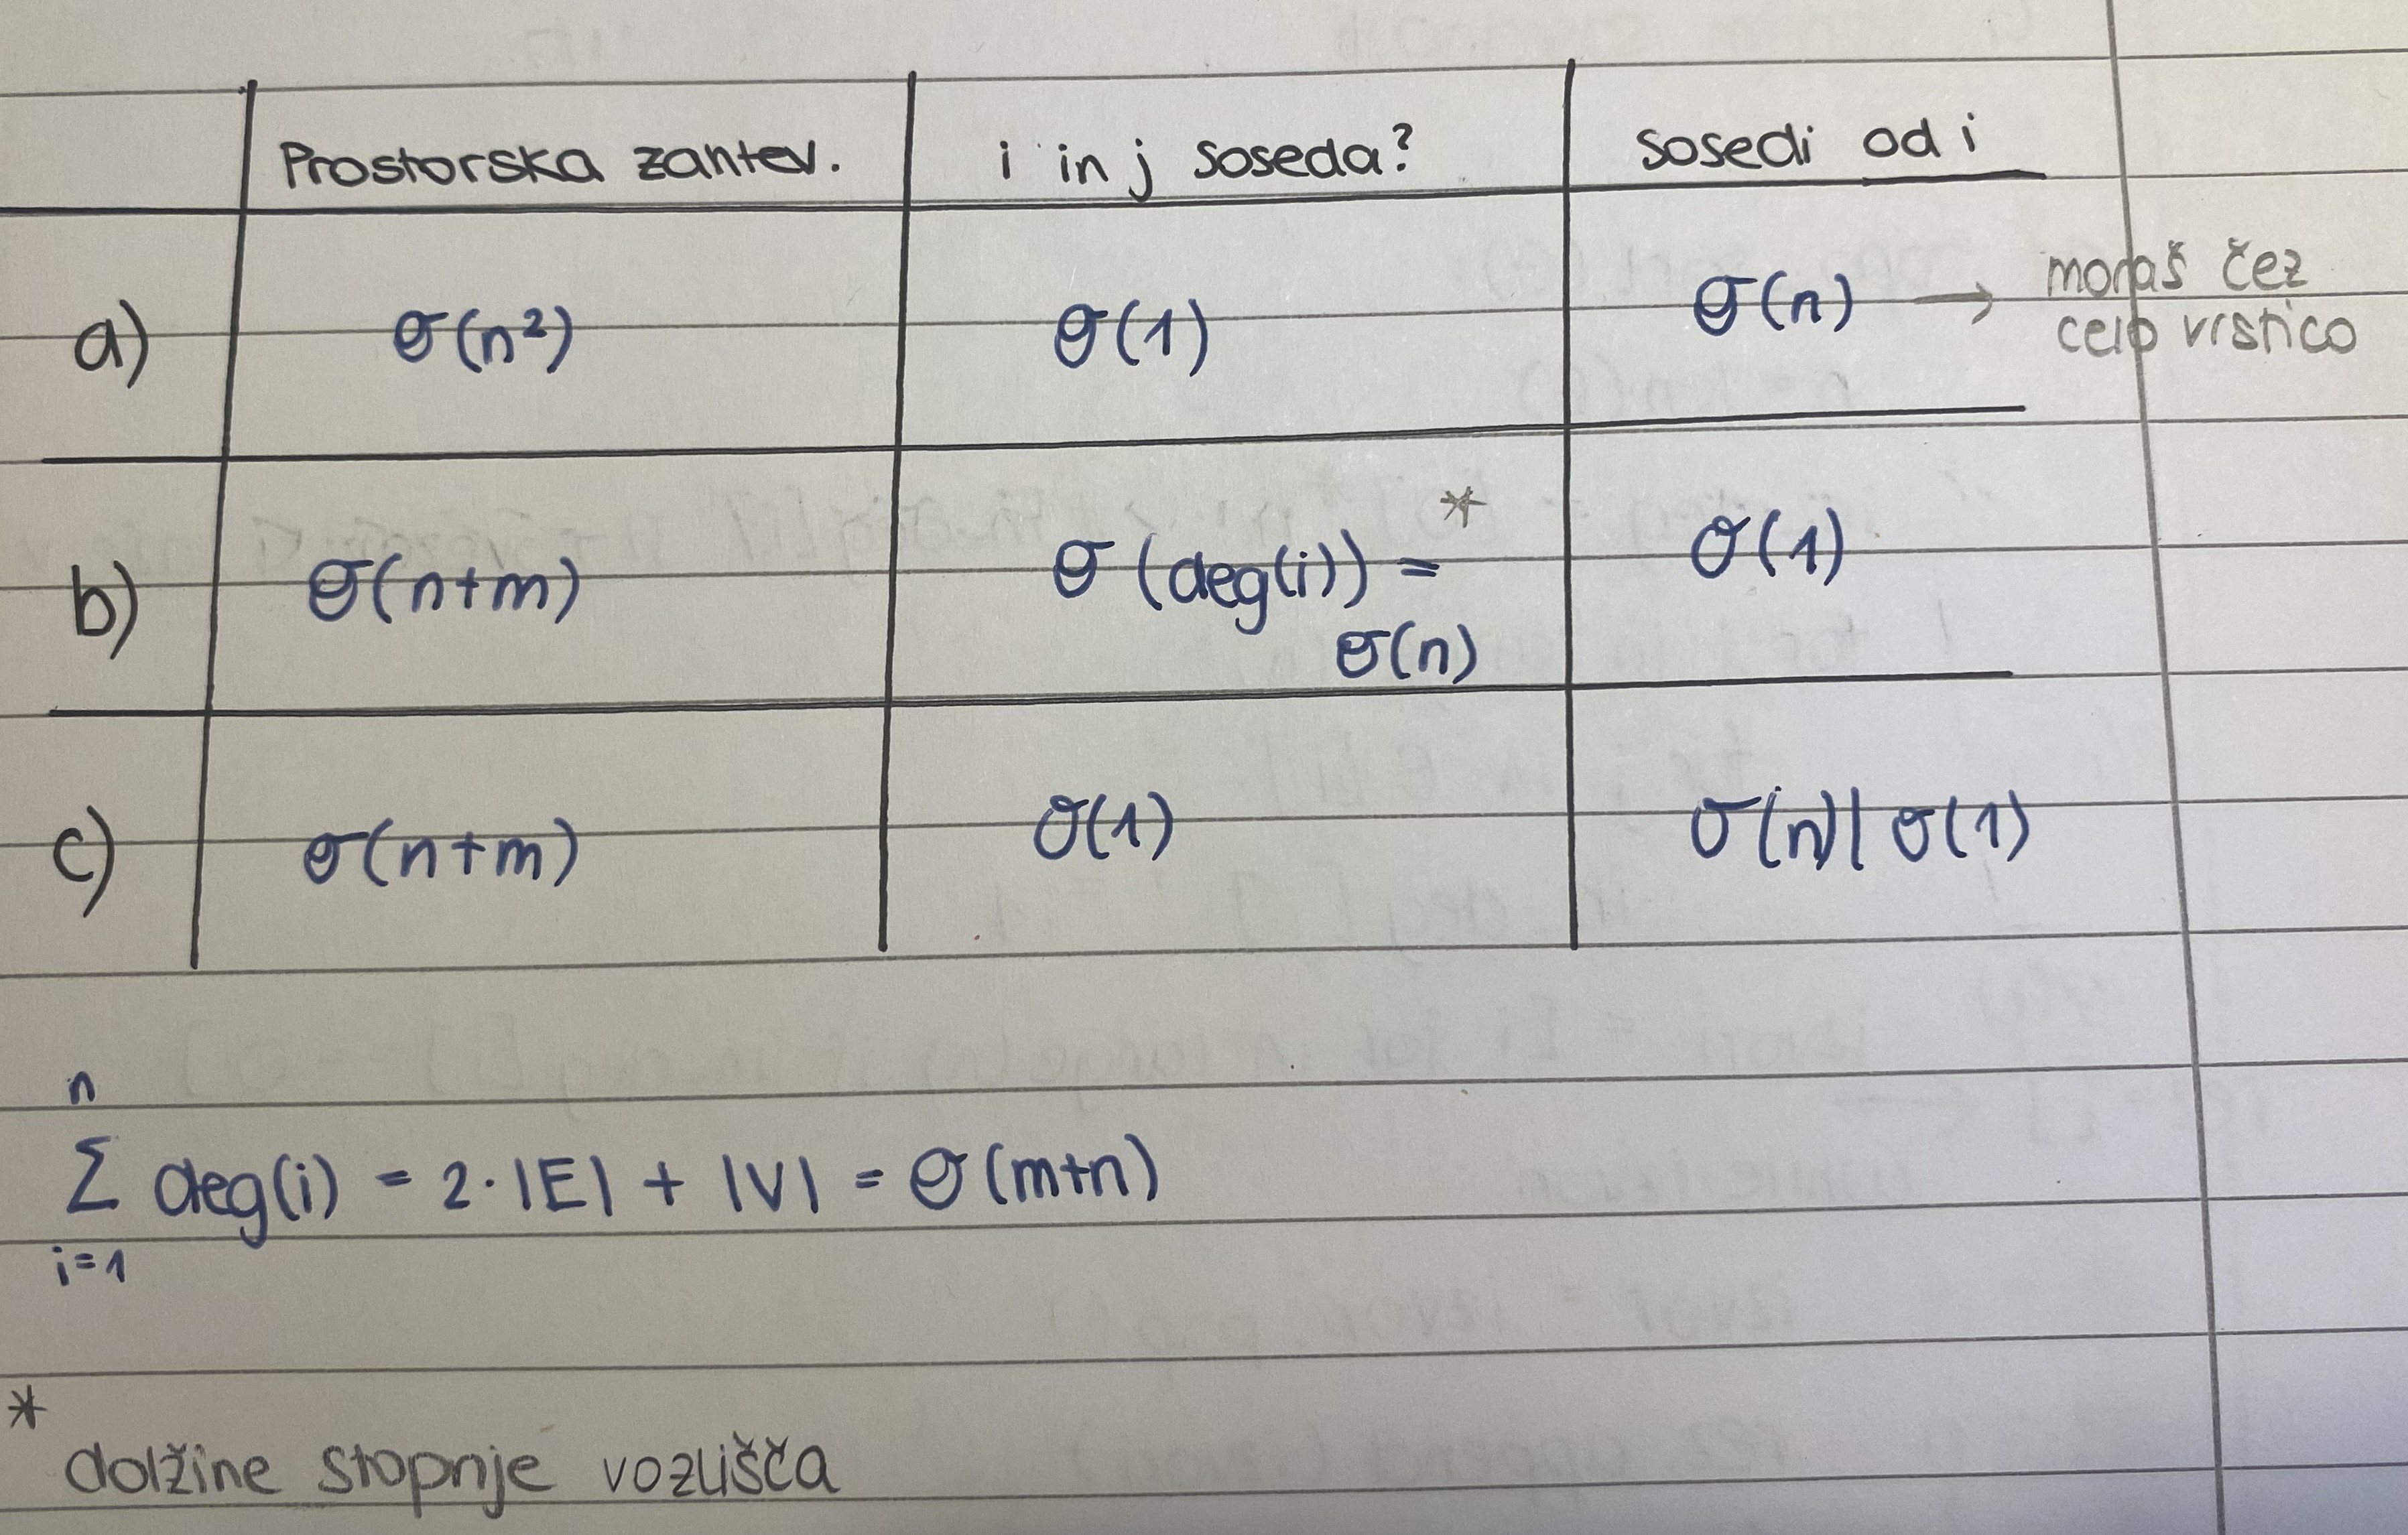 Prostorska zantev. i in j soseda? sosedi od i
a) O(n²) O(1) O(n) → moraš čez
celo vrstico
b) O(n+m) O(deg(i)) = * O(1)
O(n)
c) O(n+m) O(1) O(n) | O(1)
n
Σ deg(i) = 2·|E| + |V| = O(m+n)
i=1
*
dolžine stopnje vozlišča